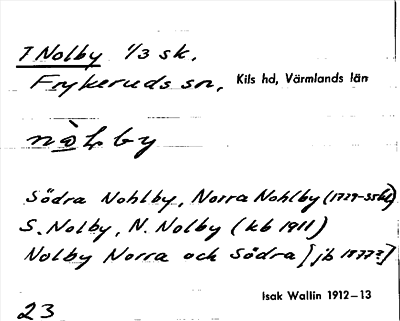 7 Nolby 1/3 sk.
Frykeruds sn, Kils hd, Värmlands län
Södra Nohlby, Norra Nohlby (1729-35
S. Nolby, N. Nolby (kb 1911)
Nolby Norra och Södra [jb 1877?]
Isak Wallin 1912-13
23